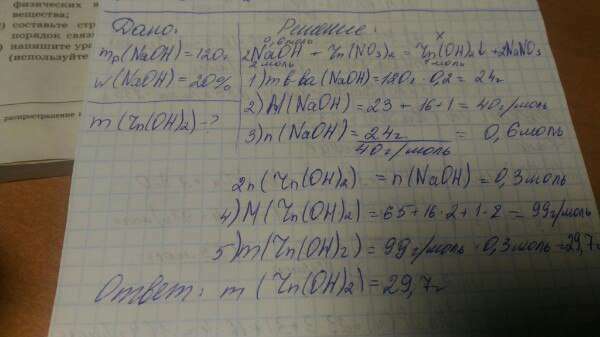 физических и
вещества;
составьте стр
порядок связи
напишите ура
(используйте
распространение
Дано:
mр(NaOH)=120г
w(NaOH)=20%
m(Zn(OH)2)-?
Решение:
0,6моль x
2NaOH + Zn(NO3)2 = Zn(OH)2↓+2NaNO3
2моль 1моль
1) m в-ва (NaOH)=120г · 0,2 = 24г
2) M(NaOH) = 23 + 16+1 = 40г/моль
3) n(NaOH) = 24г / 40г/моль = 0,6моль
2n(Zn(OH)2) = n(NaOH) = 0,3моль
4) M(Zn(OH)2) = 65+16·2+1·2 = 99г/моль
5) m(Zn(OH)2) = 99г/моль · 0,3моль = 29,7г
Ответ: m(Zn(OH)2) = 29,7г